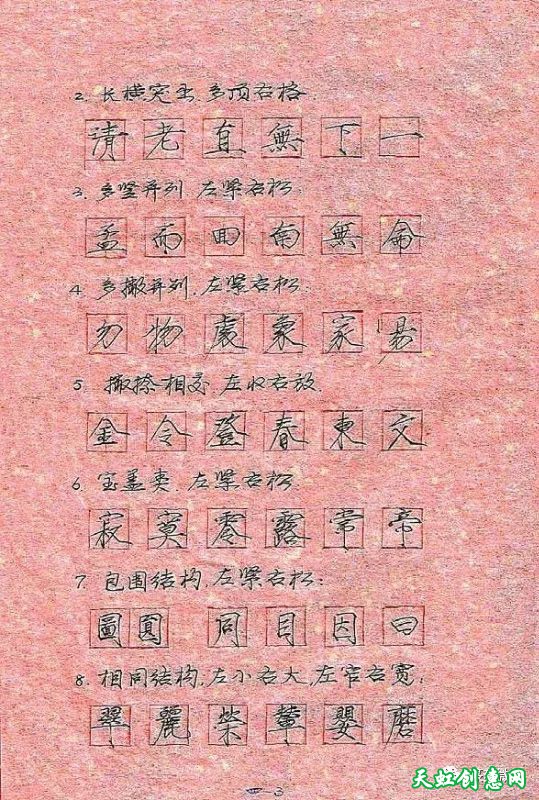 2. 长横突出,多顶右格.
请老直無下一
3. 多竖并列 左紧右松:
孟而田南無侖
4. 多撇并列,左紧右松:
勿物處象家易
5. 撇捺相交,左收右放.
金令登春東文
6. 宝盖类.左紧右松
寂寞零露常帝
7. 包围结构,左紧右松:
圖圓同目因曰
8. 相同结构,左小右大,左窄右宽:
翠麗榮輦嬰磨
天虹创意网